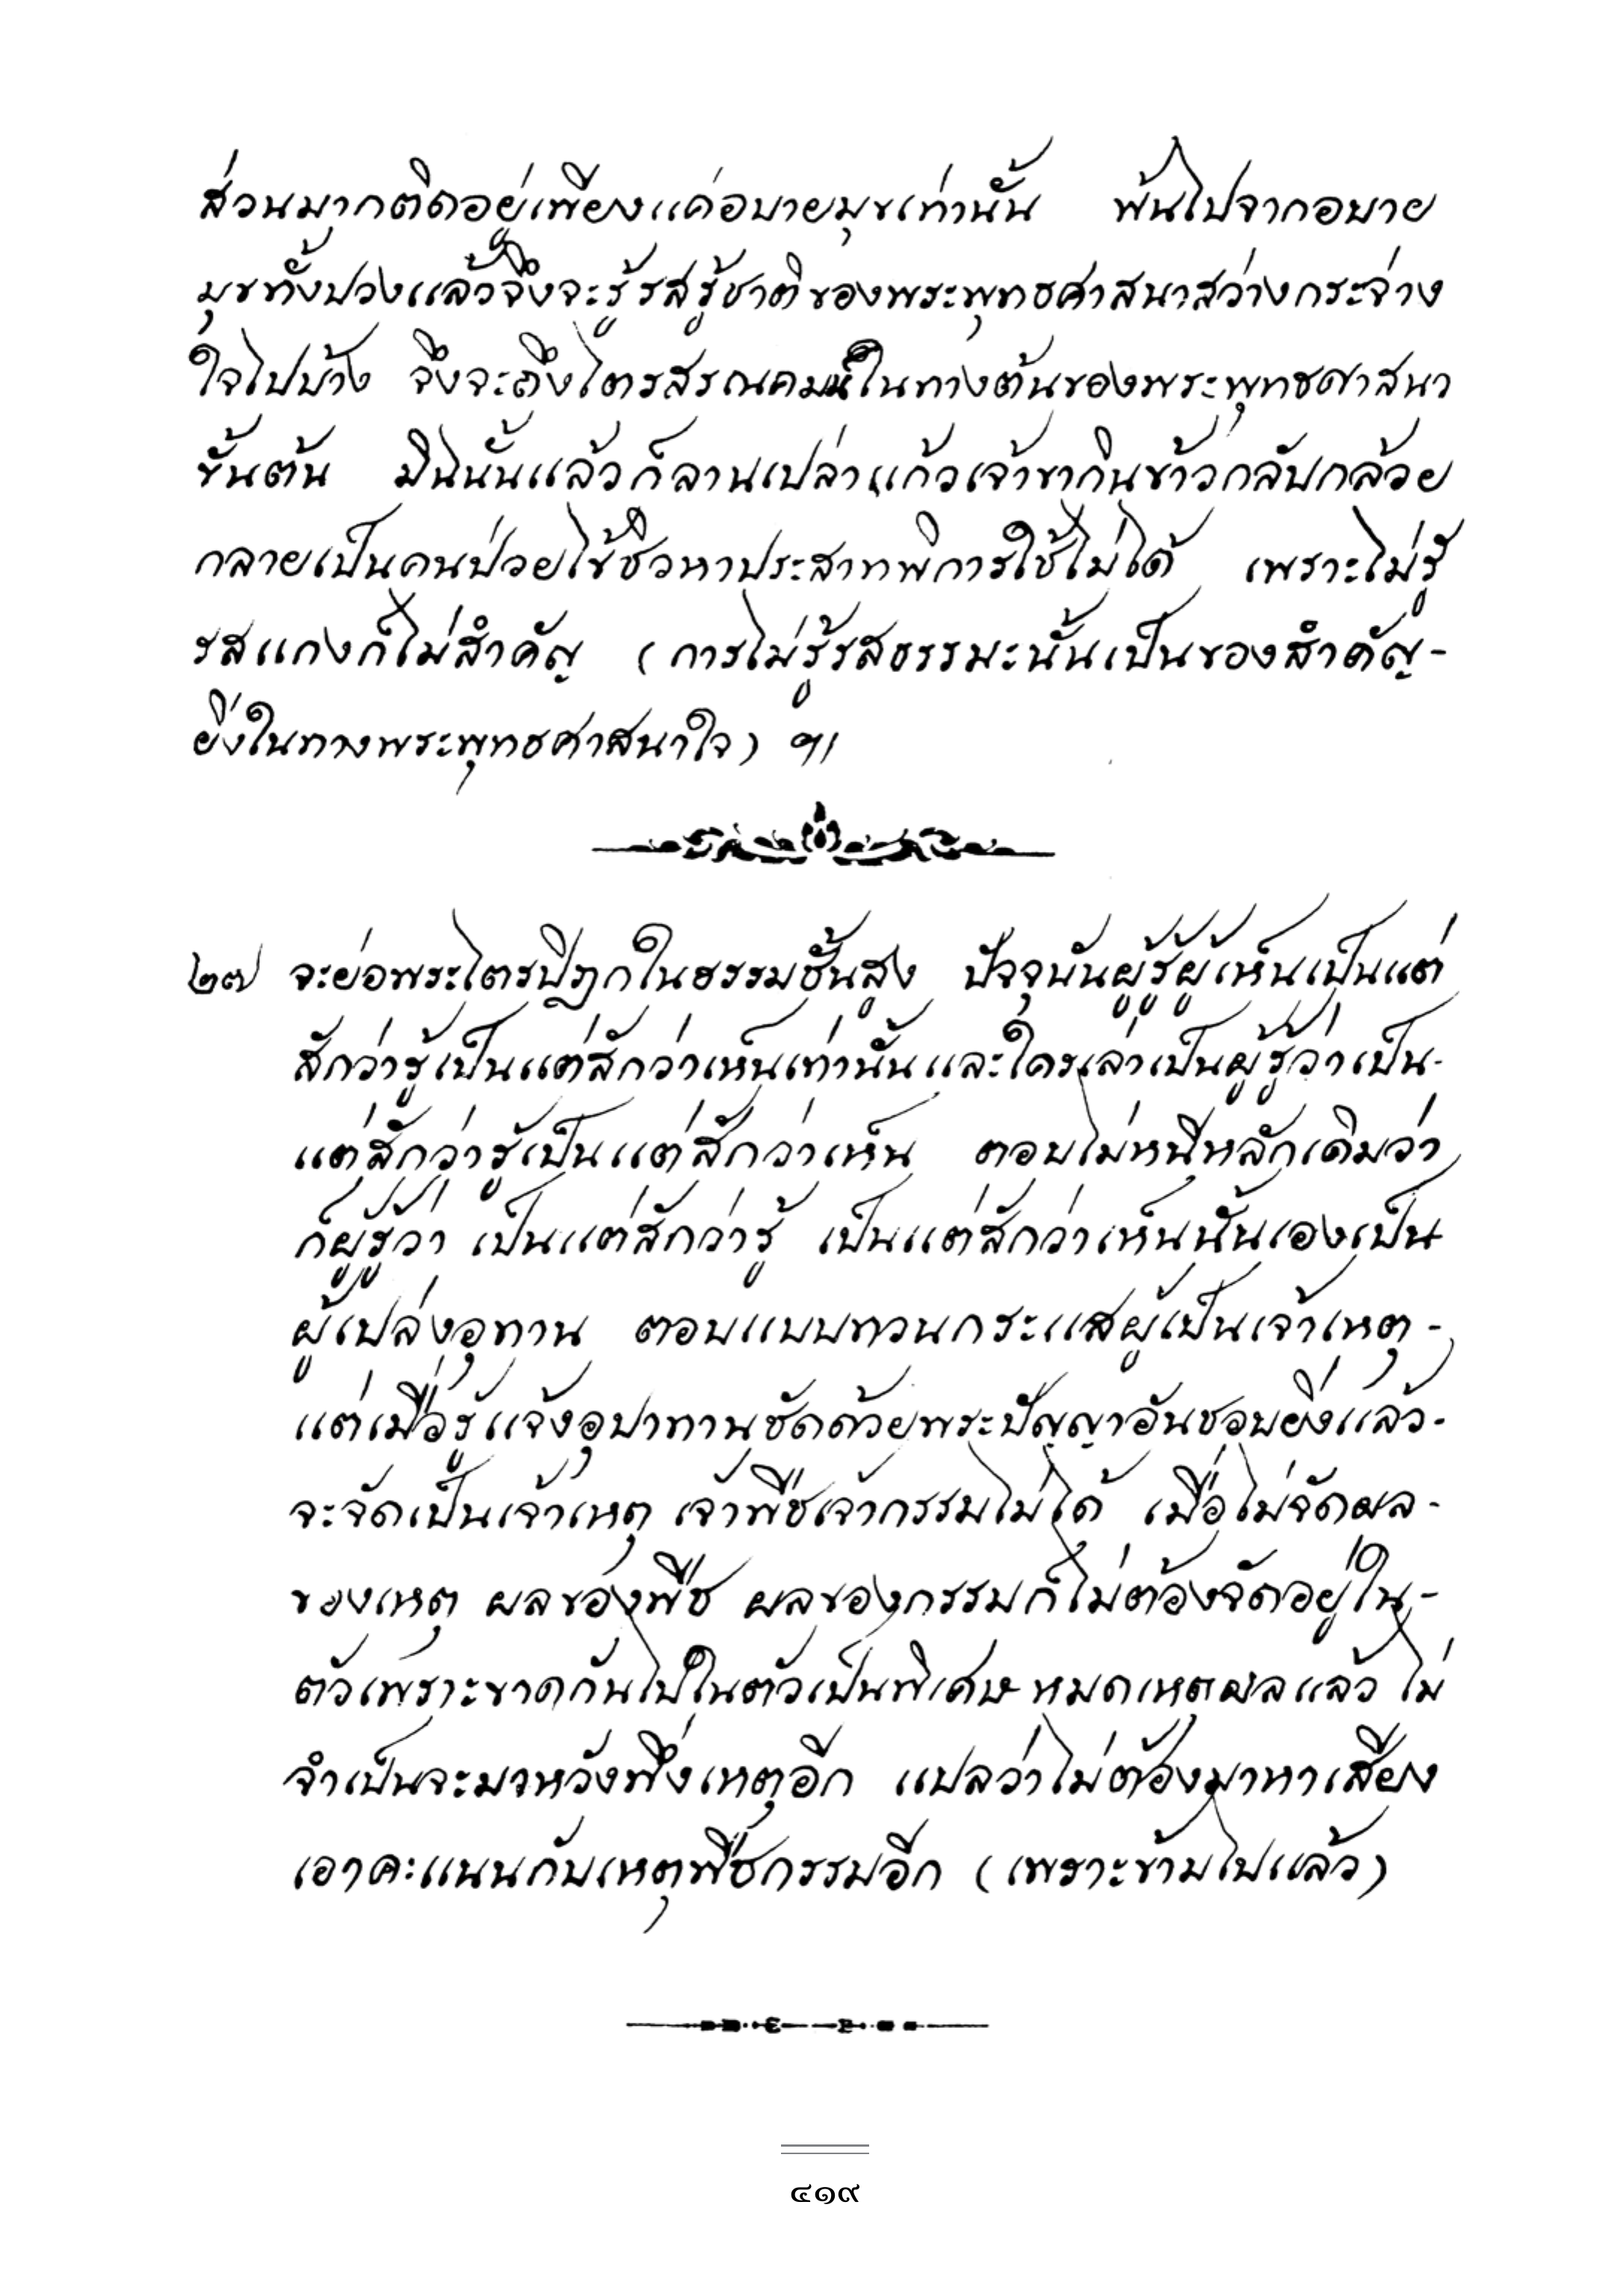 ส่วนมากติดอยู่เพียงแค่อบายมุขเท่านั้น พ้นไปจากอบาย
มุขทั้งปวงแล้วจึงจะรู้รสรู้ชาติของพระพุทธศาสนาสว่างกระจ่าง
ใจไปบ้าง จึงจะถึงไตรสรณคมน์ในทางต้นของพระพุทธศาสนา
ขั้นต้น มิฉนั้นแล้วก็ลานเปล่าแก้วเจ้าขากินข้าวกลับกล้วย
กลายเป็นคนป่วยไข้ชิวหาประสาทพิการใช้ไม่ได้ เพราะไม่รู้
รสแกงก็ไม่สำคัญ (การไม่รู้รสธรรมะนั้นเป็นของสำคัญ-
ยิ่งในทางพระพุทธศาสนาใจ) ฯ|
๒๗ จะย่อพระไตรปิฎกในธรรมชั้นสูง ปัจจุบันผู้รู้ผู้เห็นเป็นแต่
สักว่ารู้เป็นแต่สักว่าเห็นเท่านั้นและใครเล่าเป็นผู้รู้ว่าเป็น-
แต่สักว่ารู้เป็นแต่สักว่าเห็น ตอบไม่หนีหลักเดิมว่า
ก็ผู้รู้ว่า เป็นแต่สักว่ารู้ เป็นแต่สักว่าเห็นนั้นเองเป็น
ผู้เปล่งอุทาน ตอบแบบทวนกระแสผู้เป็นเจ้าเหตุ-
แต่เมื่อรู้แจ้งอุปาทานชัดด้วยพระปัญญาอันชอบยิ่งแล้ว-
จะจัดเป็นเจ้าเหตุ เจ้าพืชเจ้ากรรมไม่ได้ เมื่อไม่จัดผล-
ของเหตุ ผลของพืช ผลของกรรมก็ไม่ต้องจัดอยู่ใน-
ตัวเพราะขาดกันไปในตัวเป็นพิเศษ หมดเหตุผลแล้ว ไม่
จำเป็นจะมาหวังพึ่งเหตุอีก แปลว่าไม่ต้องมาหาเสียง
เอาคะแนนกับเหตุพืชกรรมอีก (เพราะข้ามไปแล้ว)
๔๑๙